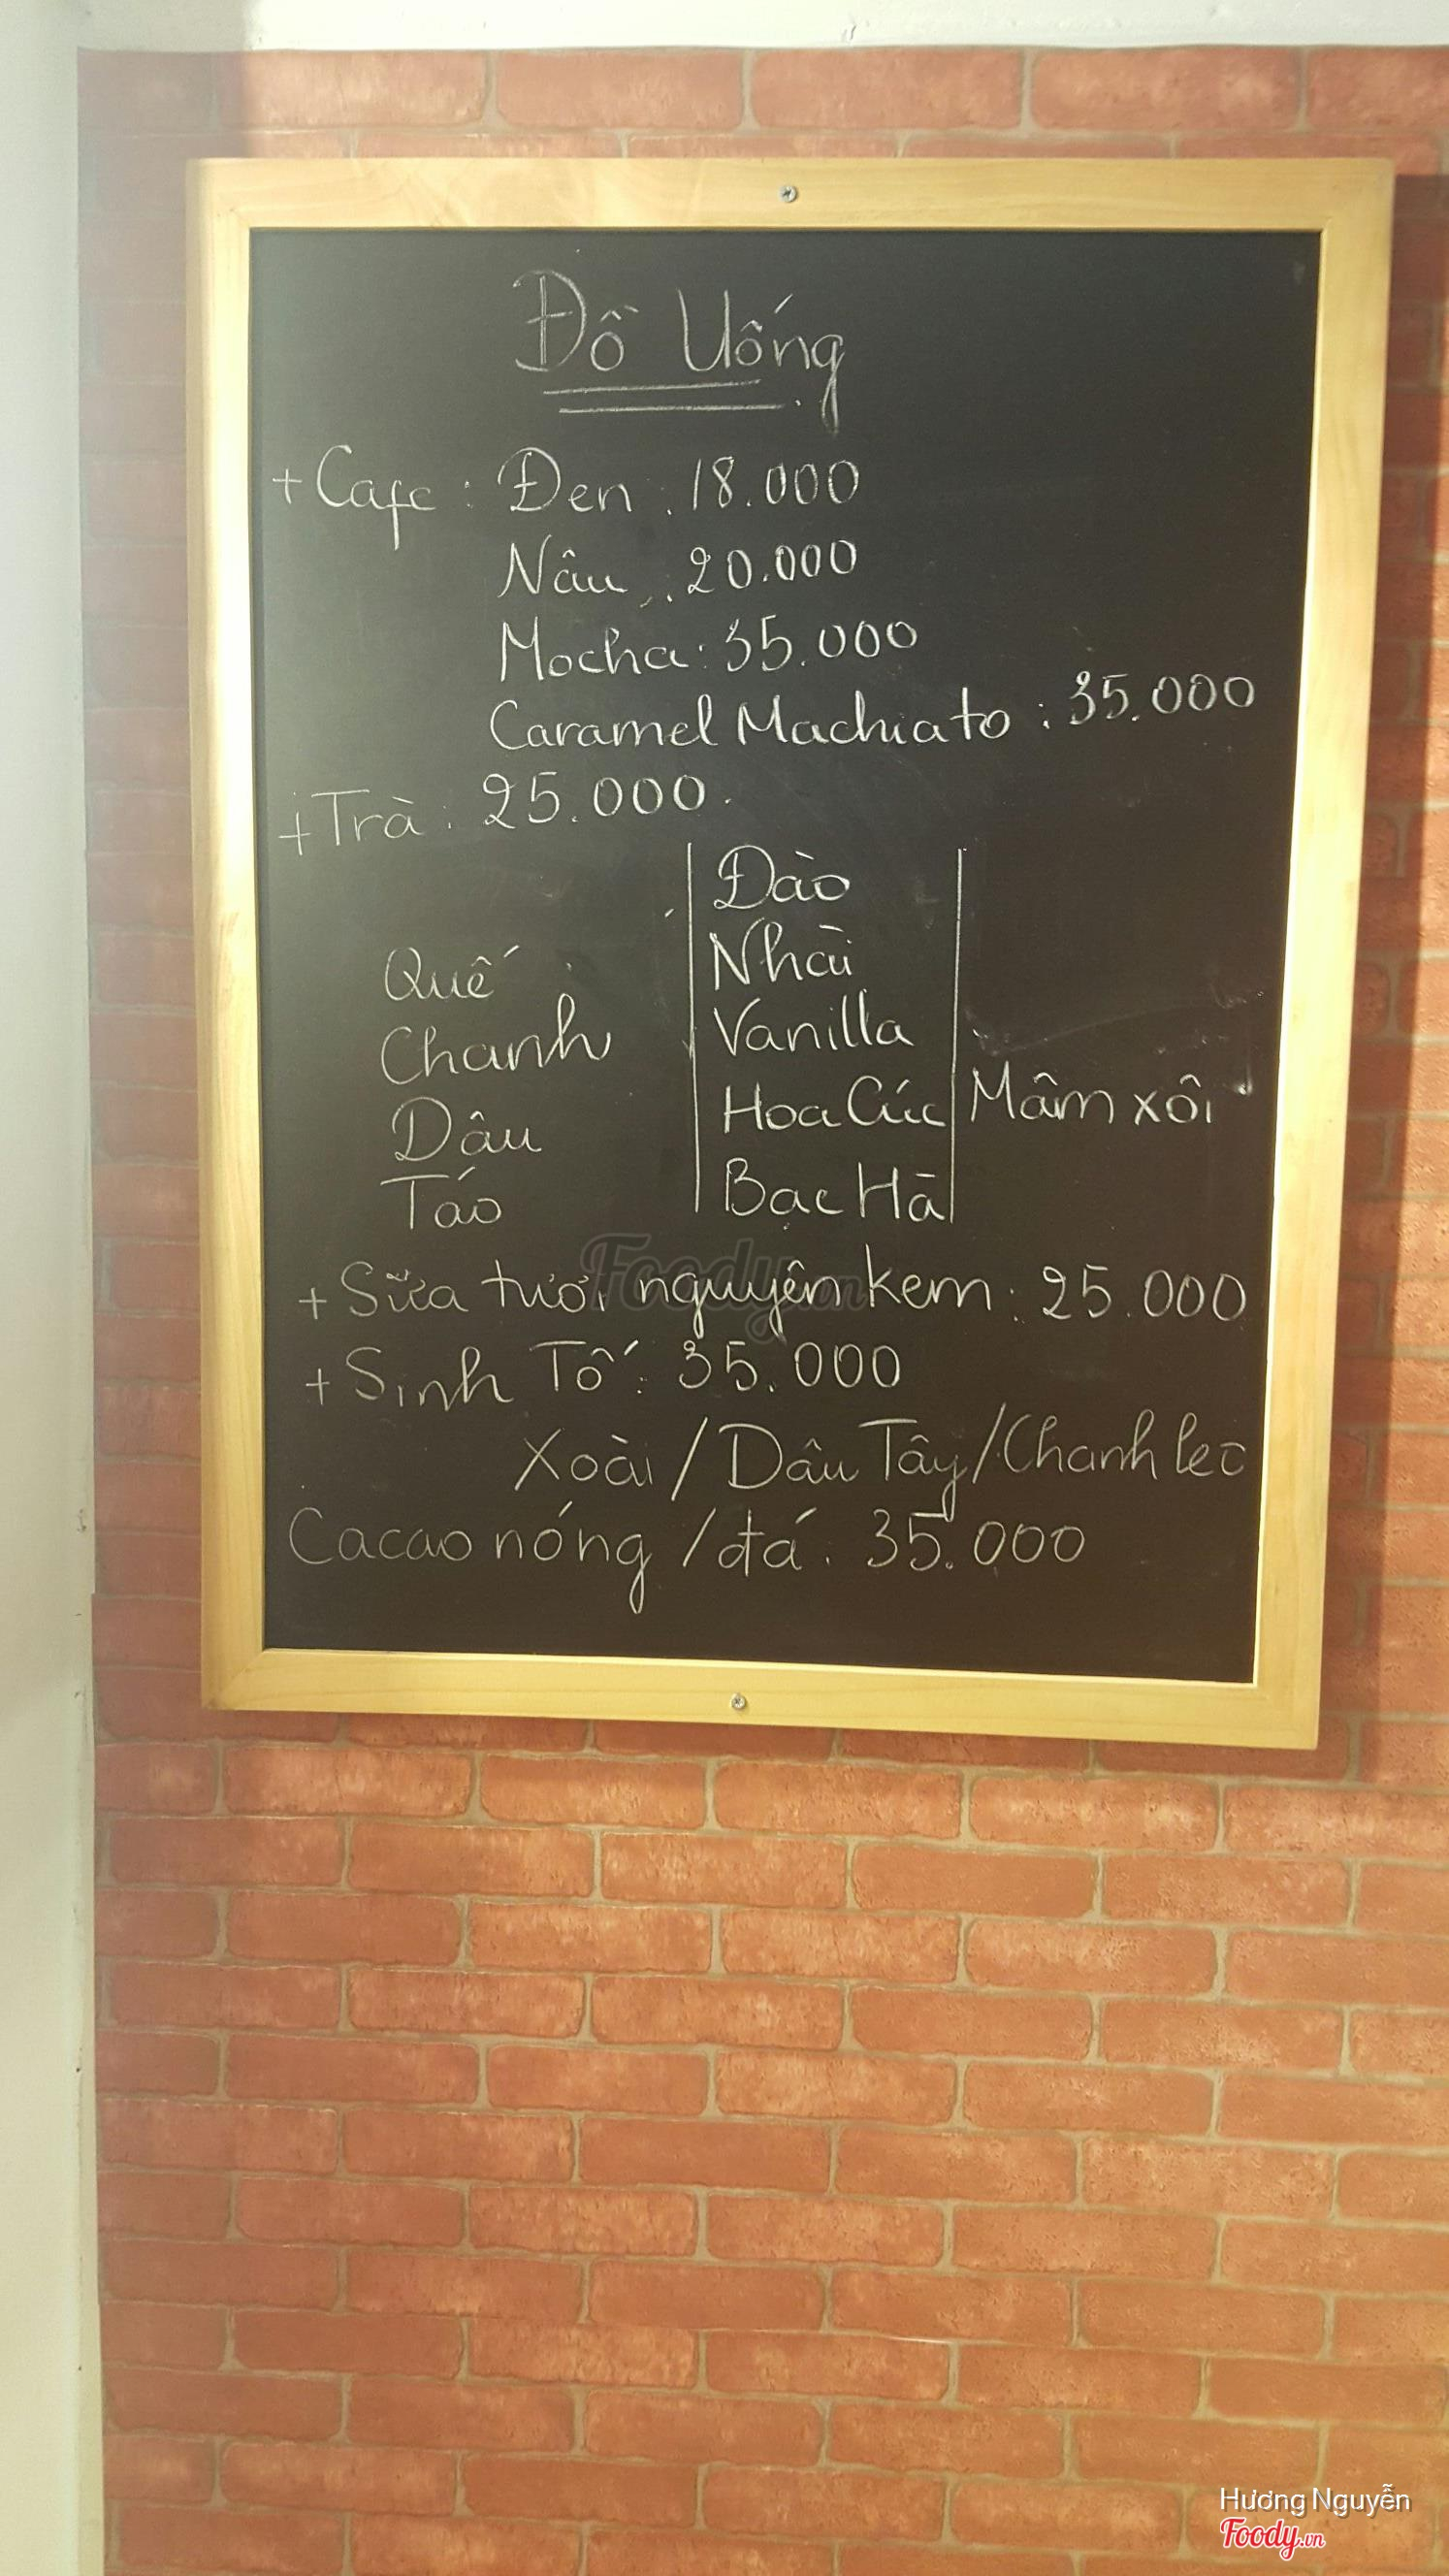 Đồ Uống
+ Cafe : Đen : 18.000
Nâu : 20.000
Mocha : 35.000
Caramel Machiato : 35.000
+ Trà : 25.000.
Quế
Chanh
Dâu
Táo
Đào
Nhài
Vanilla
Hoa Cúc
Bạc Hà
Mâm xôi
+ Sữa tươi nguyên kem : 25.000
+ Sinh Tố : 35.000
Xoài / Dâu Tây / Chanh leo
Cacao nóng / đá : 35.000
Foody.vn
Hương Nguyễn
Foody.vn